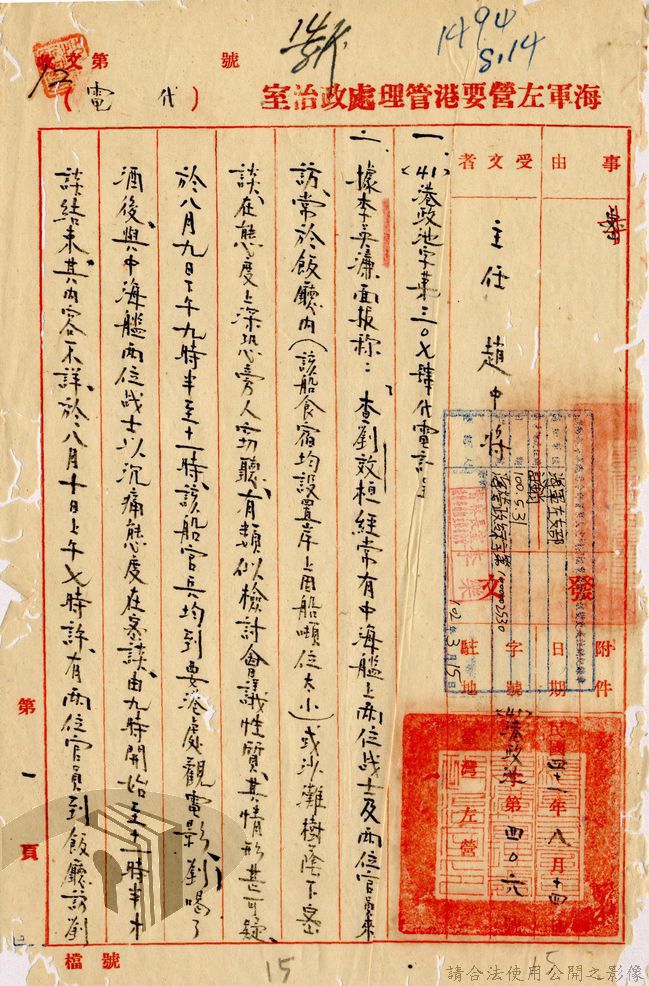 1494
8.14
第 號
(代電)
海軍左營要港管理處政治室
事由
受文者
主任 趙中將
附件
發文
日期
字號
駐地
民國四十一年八月十四
(41)港政池第四〇六
臺灣左營
海軍左支部
100.5.31
102年3月15日
一、(41)港政池字第三〇七肆代電計呈
二、據李英濂面報稱：「查劉效桓經常有中海艦上兩位战士及兩位官員來
訪、常於飯廳內(該船食宿均設置岸上因船噸位太小)或沙灘樹陰下密
談、在態度上深恐旁人窃聽、有類似檢討會議性質、其情形甚可疑、
於八月九日下午九時半至十一時、該船官兵均到要港處觀電影、劉喝了
酒後、與中海艦兩位战士以沉痛態度在密談、由九時開始至十一時半才
談結束、其內容不詳、於八月十日上午七時許、有兩位官員到飯廳訪劉
第一頁
檔號
15
15
請合法使用公開之影像